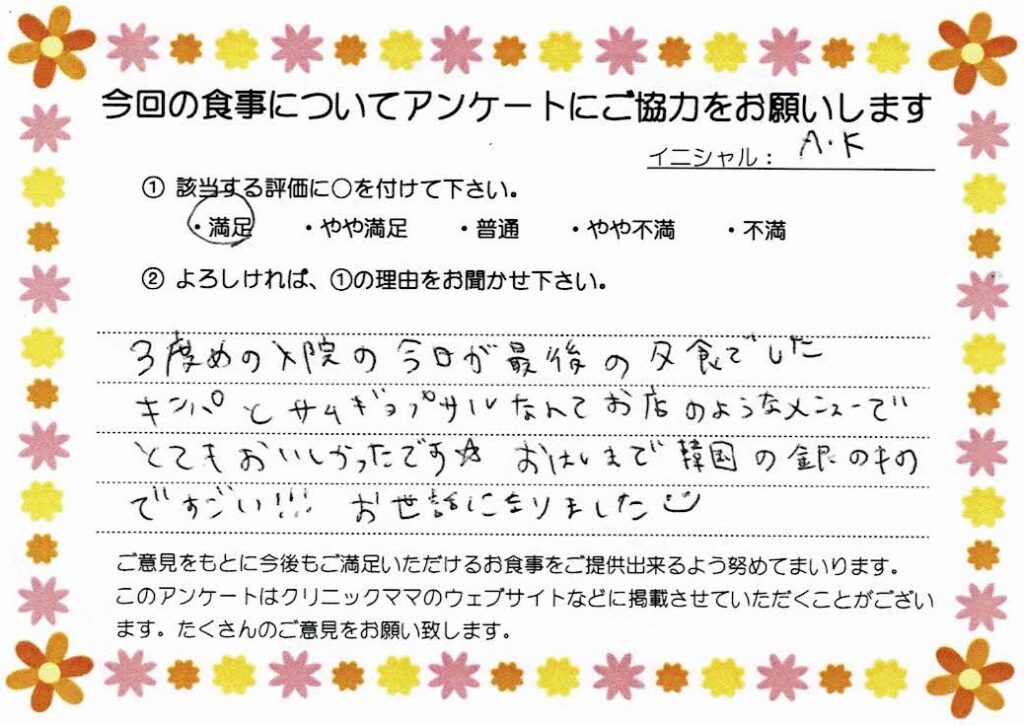 今回の食事についてアンケートにご協力をお願いします
イニシャル： A・K
① 該当する評価に○を付けて下さい。
・満足 ・やや満足 ・普通 ・やや不満 ・不満
② よろしければ、①の理由をお聞かせ下さい。
3度めの入院の今日が最後の夕食でした
キンパとサムギョプサルなんてお店のようなメニューで
とてもおいしかったです☆ おはしまで韓国の銀のもの
ですごい!!! お世話になりました
ご意見をもとに今後もご満足いただけるお食事をご提供出来るよう努めてまいります。
このアンケートはクリニックママのウェブサイトなどに掲載させていただくことがござい
ます。たくさんのご意見をお願い致します。